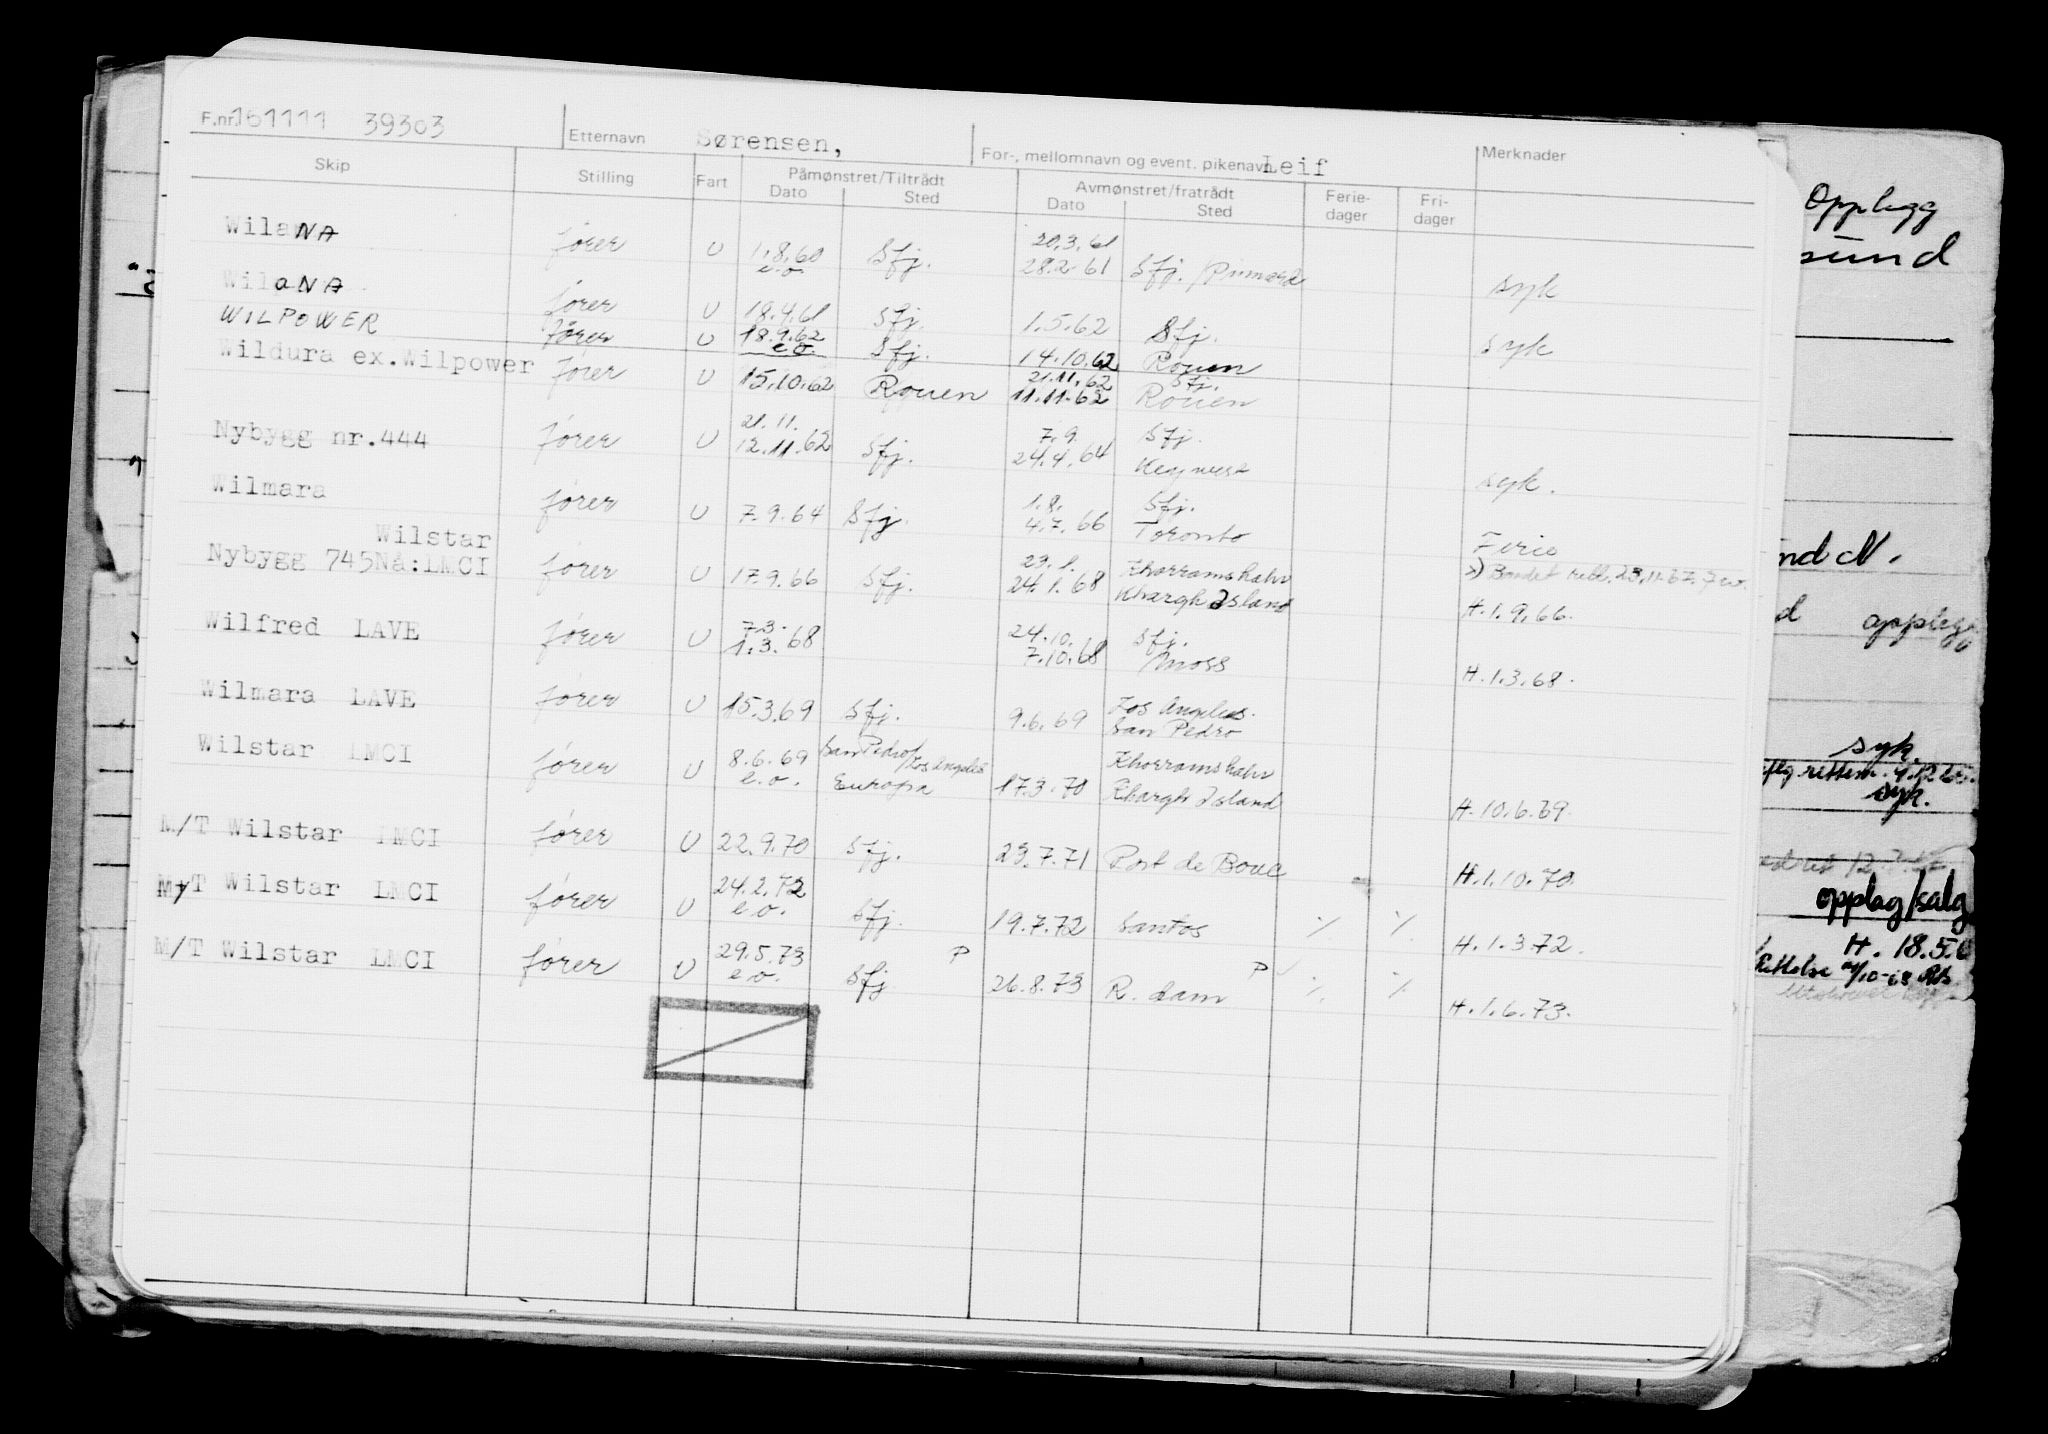 F.nr. 161111 39303 Etternavn Sørensen, For-, mellomnavn og event. pikenavn Leif Merknader
Skip Stilling Fart Påmønstret/Tiltrådt Dato Sted Avmønstret/fratrådt Dato Sted Ferie-dager Fri-dager
20.3.61
WilaNA fører U 1.8.60 Sfj. 28.2.61 Sfj. / syk
e.o.
WilaNA fører U 18.4.61 Sfj. 1.5.62 Sfj. syk
WILPOWER fører U 18.9.62 Sfj. 14.10.62 Rouen
e.o. 21.11.62 Sfj.
Wildura ex.Wilpower fører U 15.10.62 Rouen 11.11.62 Rouen
21.11. 7.9. Sfj.
Nybygg nr.444 fører U 12.11.62 Sfj. 24.4.64 Key west syk.
1.8. Sfj.
Wilmara fører U 7.9.64 Sfj. 4.7.66 Toronto Ferie
Wilstar 29.1. Khorramshahr
Nybygg 745Nå:LMCI fører U 17.9.66 Sfj. 24.1.68 Khargh Island H.1.9.66.
7.3. 24.10. Sfj.
Wilfred LAVE fører U 1.3.68 7.10.68 Moss H.1.3.68.
Los Angeles.
Wilmara LAVE fører U 15.3.69 Sfj. 9.6.69 San Pedro
San Pedro/Los Angeles Khorramshahr
Wilstar LMCI fører U 8.6.69 Europa 17.3.70 Khargh Island H.10.6.69.
e.o.
M/T Wilstar LMCI fører U 22.9.70 Sfj. 29.7.71 Port de Bouc H.1.10.70.
M/T Wilstar LMCI fører U 24.2.72 Sfj. 19.7.72 Santos % % H.1.3.72.
e.o.
M/T Wilstar LMCI fører U 29.5.73 Sfj P 26.8.73 R.dam P % % H.1.6.73.
e.o.
Opplegg
sund
nd N.
d opplegg
syk.
syk.
opplag/salg
H. 18.5.6